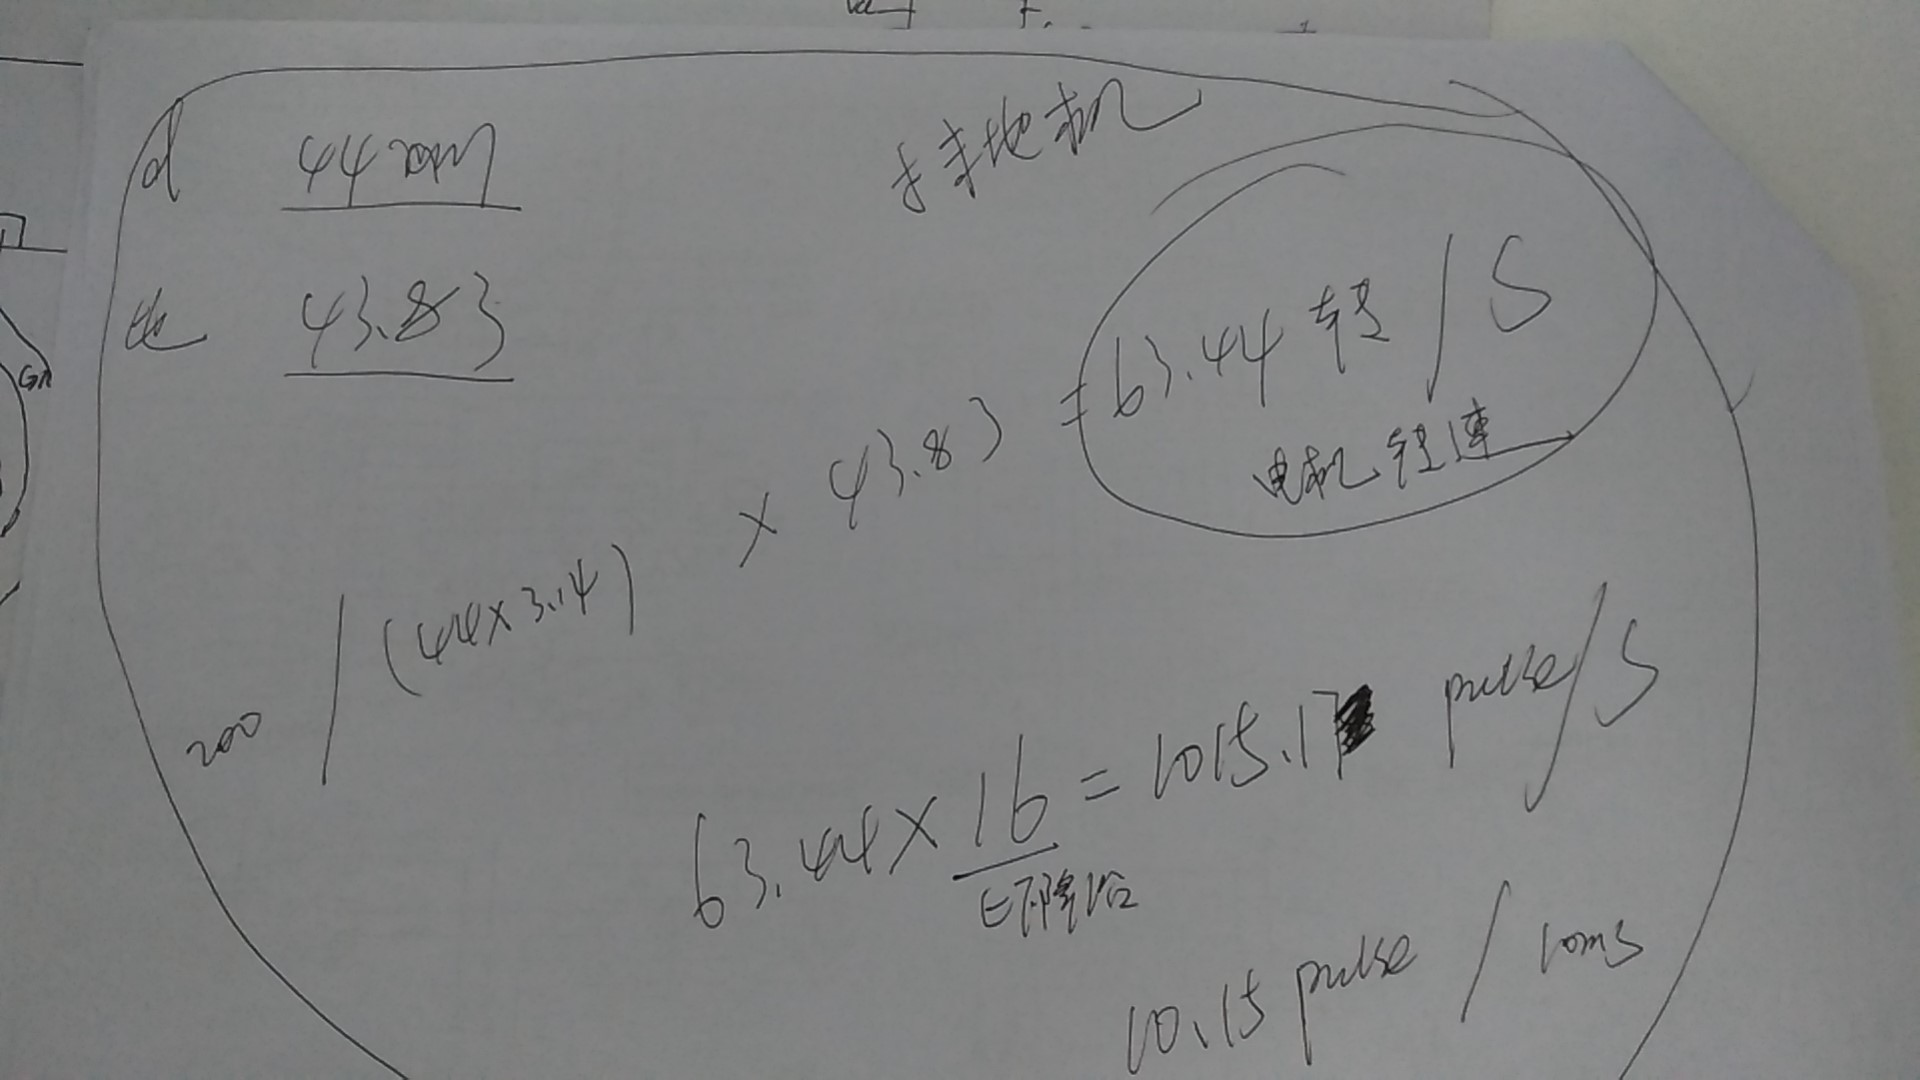 d 44mm
扫地机
比 43.83
200 / (44×3.14) × 43.83 = 63.44 转/S
电机转速
63.44×16 = 1015.17 pulse/S
下降沿
10.15 pulse / 10ms
Gn